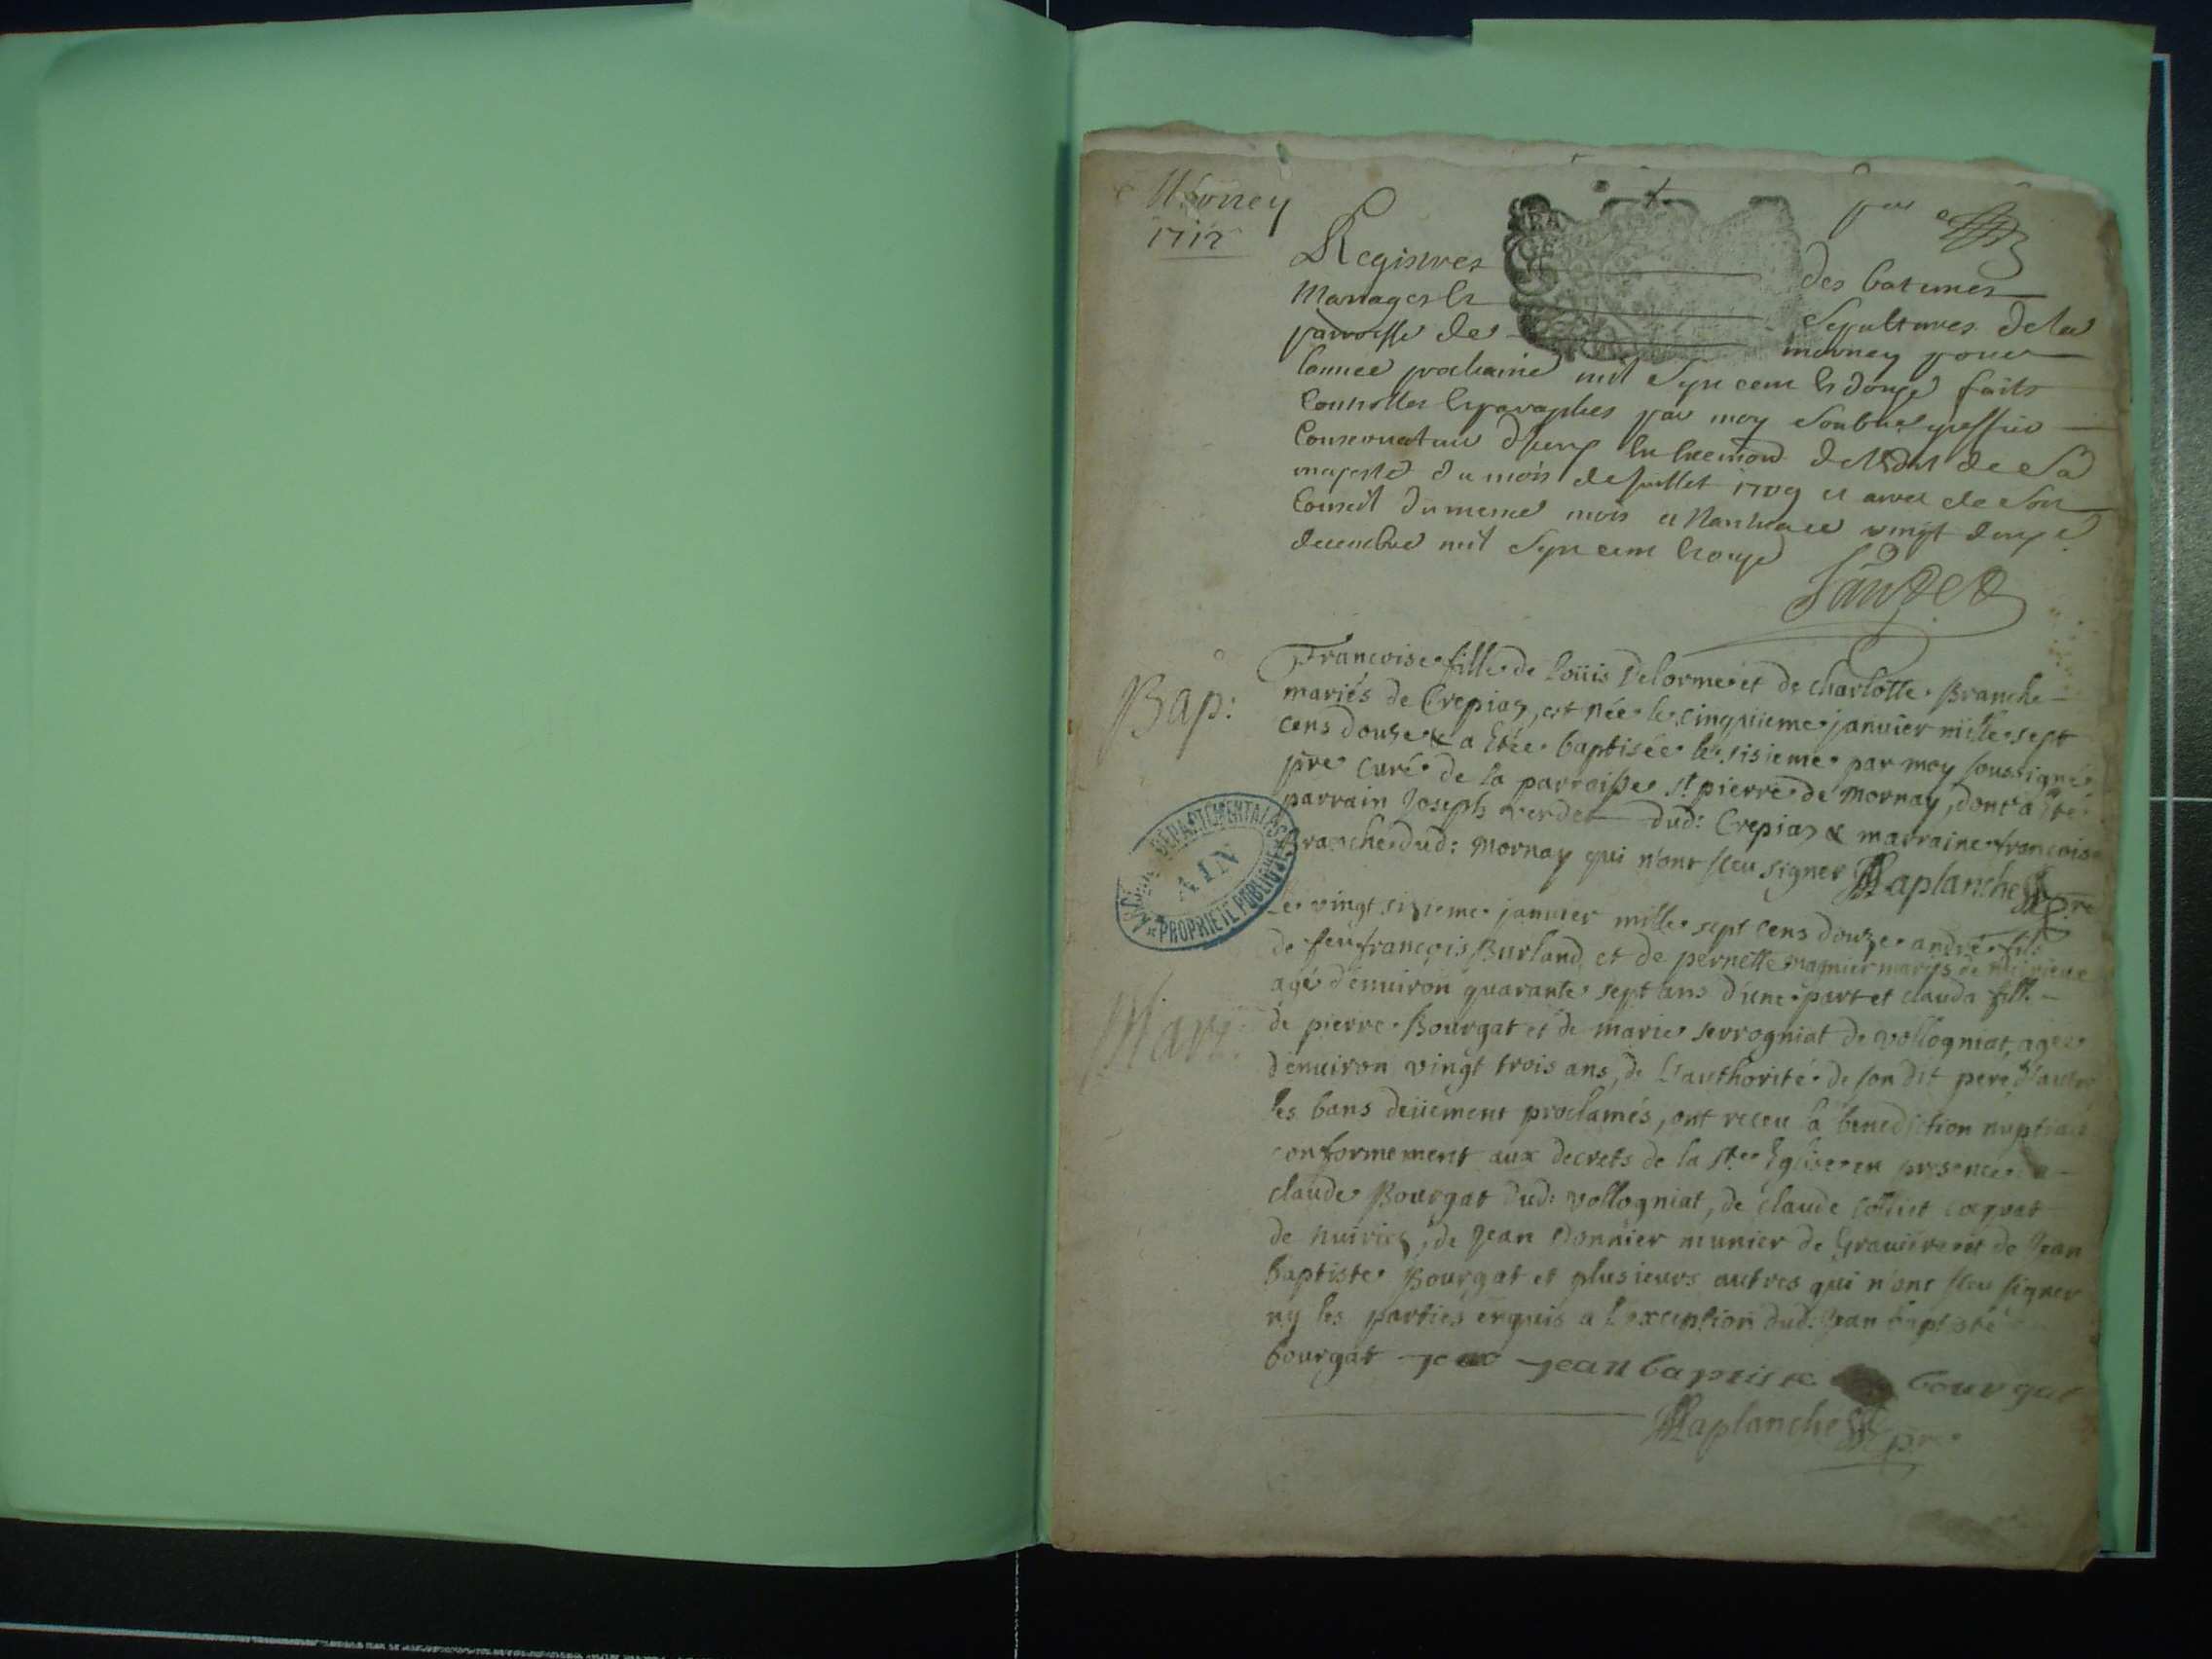 Morney
1712
Registres des batemes
Mariages et Sepultures de la
parroisse de morney pour
lannee prochaine mil sept cent et douze faits
Controlles et paraphes par moy soubne greffier
Conservateur diceux en lexecution de ledit de sa
majesté du mois de juillet 1709 et arret de son
Conseil du meme mois a Nantua ce vingt deuxe
decembre mil sept cent et onze
Bap:
Francoise fille de Loüis Delorme et de charlotte Branche
mariés de Crepias, est née le cinquieme janvier mille sept
cens douze & a etée baptisée le sisieme par moy soussigné
pre curé de la parroisse st pierre de Mornay, dont a été
parrain Joseph verdet dud: Crepias & marraine francoise
Branche dud: Mornay qui n'ont sceu signer Laplanche pre
ARCHIVES DÉPARTEMENTALES
AIN
PROPRIÉTÉ PUBLIQUE
Le vingt sixieme janvier mille sept cens douze andré fils
de feu françois Burland et de pernette mariés de
Mari:
agé d'enuiron quarante sept ans d'une part et clauda fille
de pierre Bourgat et de marie serrogniat de vollogniat, agée
d'enuiron vingt trois ans, de l'authorité de son dit pere d'autre
les bans deüement proclamés, ont receu la benediction nuptiale
conformement aux decrets de la ste Eglise en presence de
claude Bourgat dud: vollogniat, de claude
de nuirieu, de Jean Donnier munier de Grauiere et de Jean
baptiste Bourgat et plusieurs autres qui n'ont sceu signer
ny les parties enquis a l'exception dud: Jean baptiste
bourgat jean baptiste bourgat
Laplanche pre